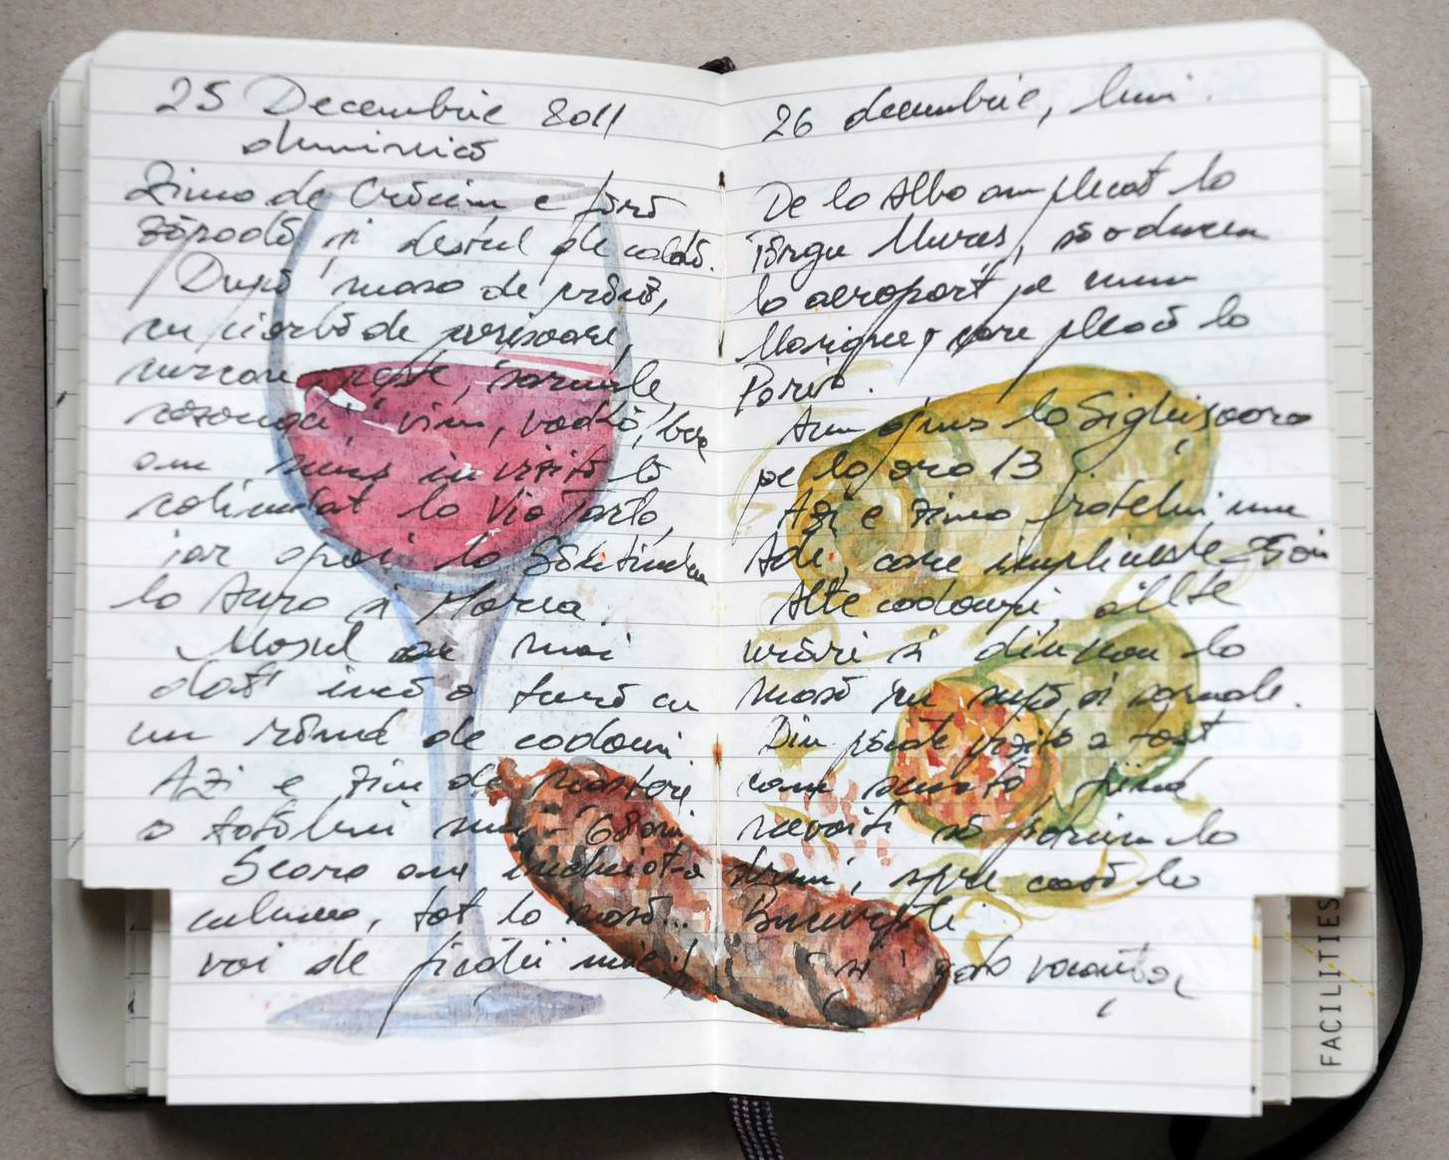 25 Decembrie 2011
duminică
Ziua de Crăciun e fără
zăpadă și destul de caldă.
După masa de prânz,
cu ciorbă de perișoare,
mâncare pește, sarmale,
cozonaci, vin, vodkă,
am mers în vizită la
colindat la Via
iar apoi la Sântimbru
la Aura și Maria.
Moșul a mai
dat încă o tură cu
un rând de cadouri
Azi e ziua de naștere
a tatălui meu - 68 ani
Seara am încheiat-o
culmea, tot la masă...
vai de ficații mei!
26 decembrie, luni.
De la Alba am plecat la
Târgu Mureș, să o ducem
la aeroport pe
care pleacă la
Paris.
Am ajuns la Sighișoara
pe la ora 13
Azi e ziua fratelui meu
Adi, care împlinește 25 ani
Alte cadouri, alte
urări și din nou la
masă cu supă și sarmale.
Din păcate vizita a fost
cam scurtă, fiind
nevoiți să pornim la
drum, spre casă la
București
și gata vacanța
FACILITIES